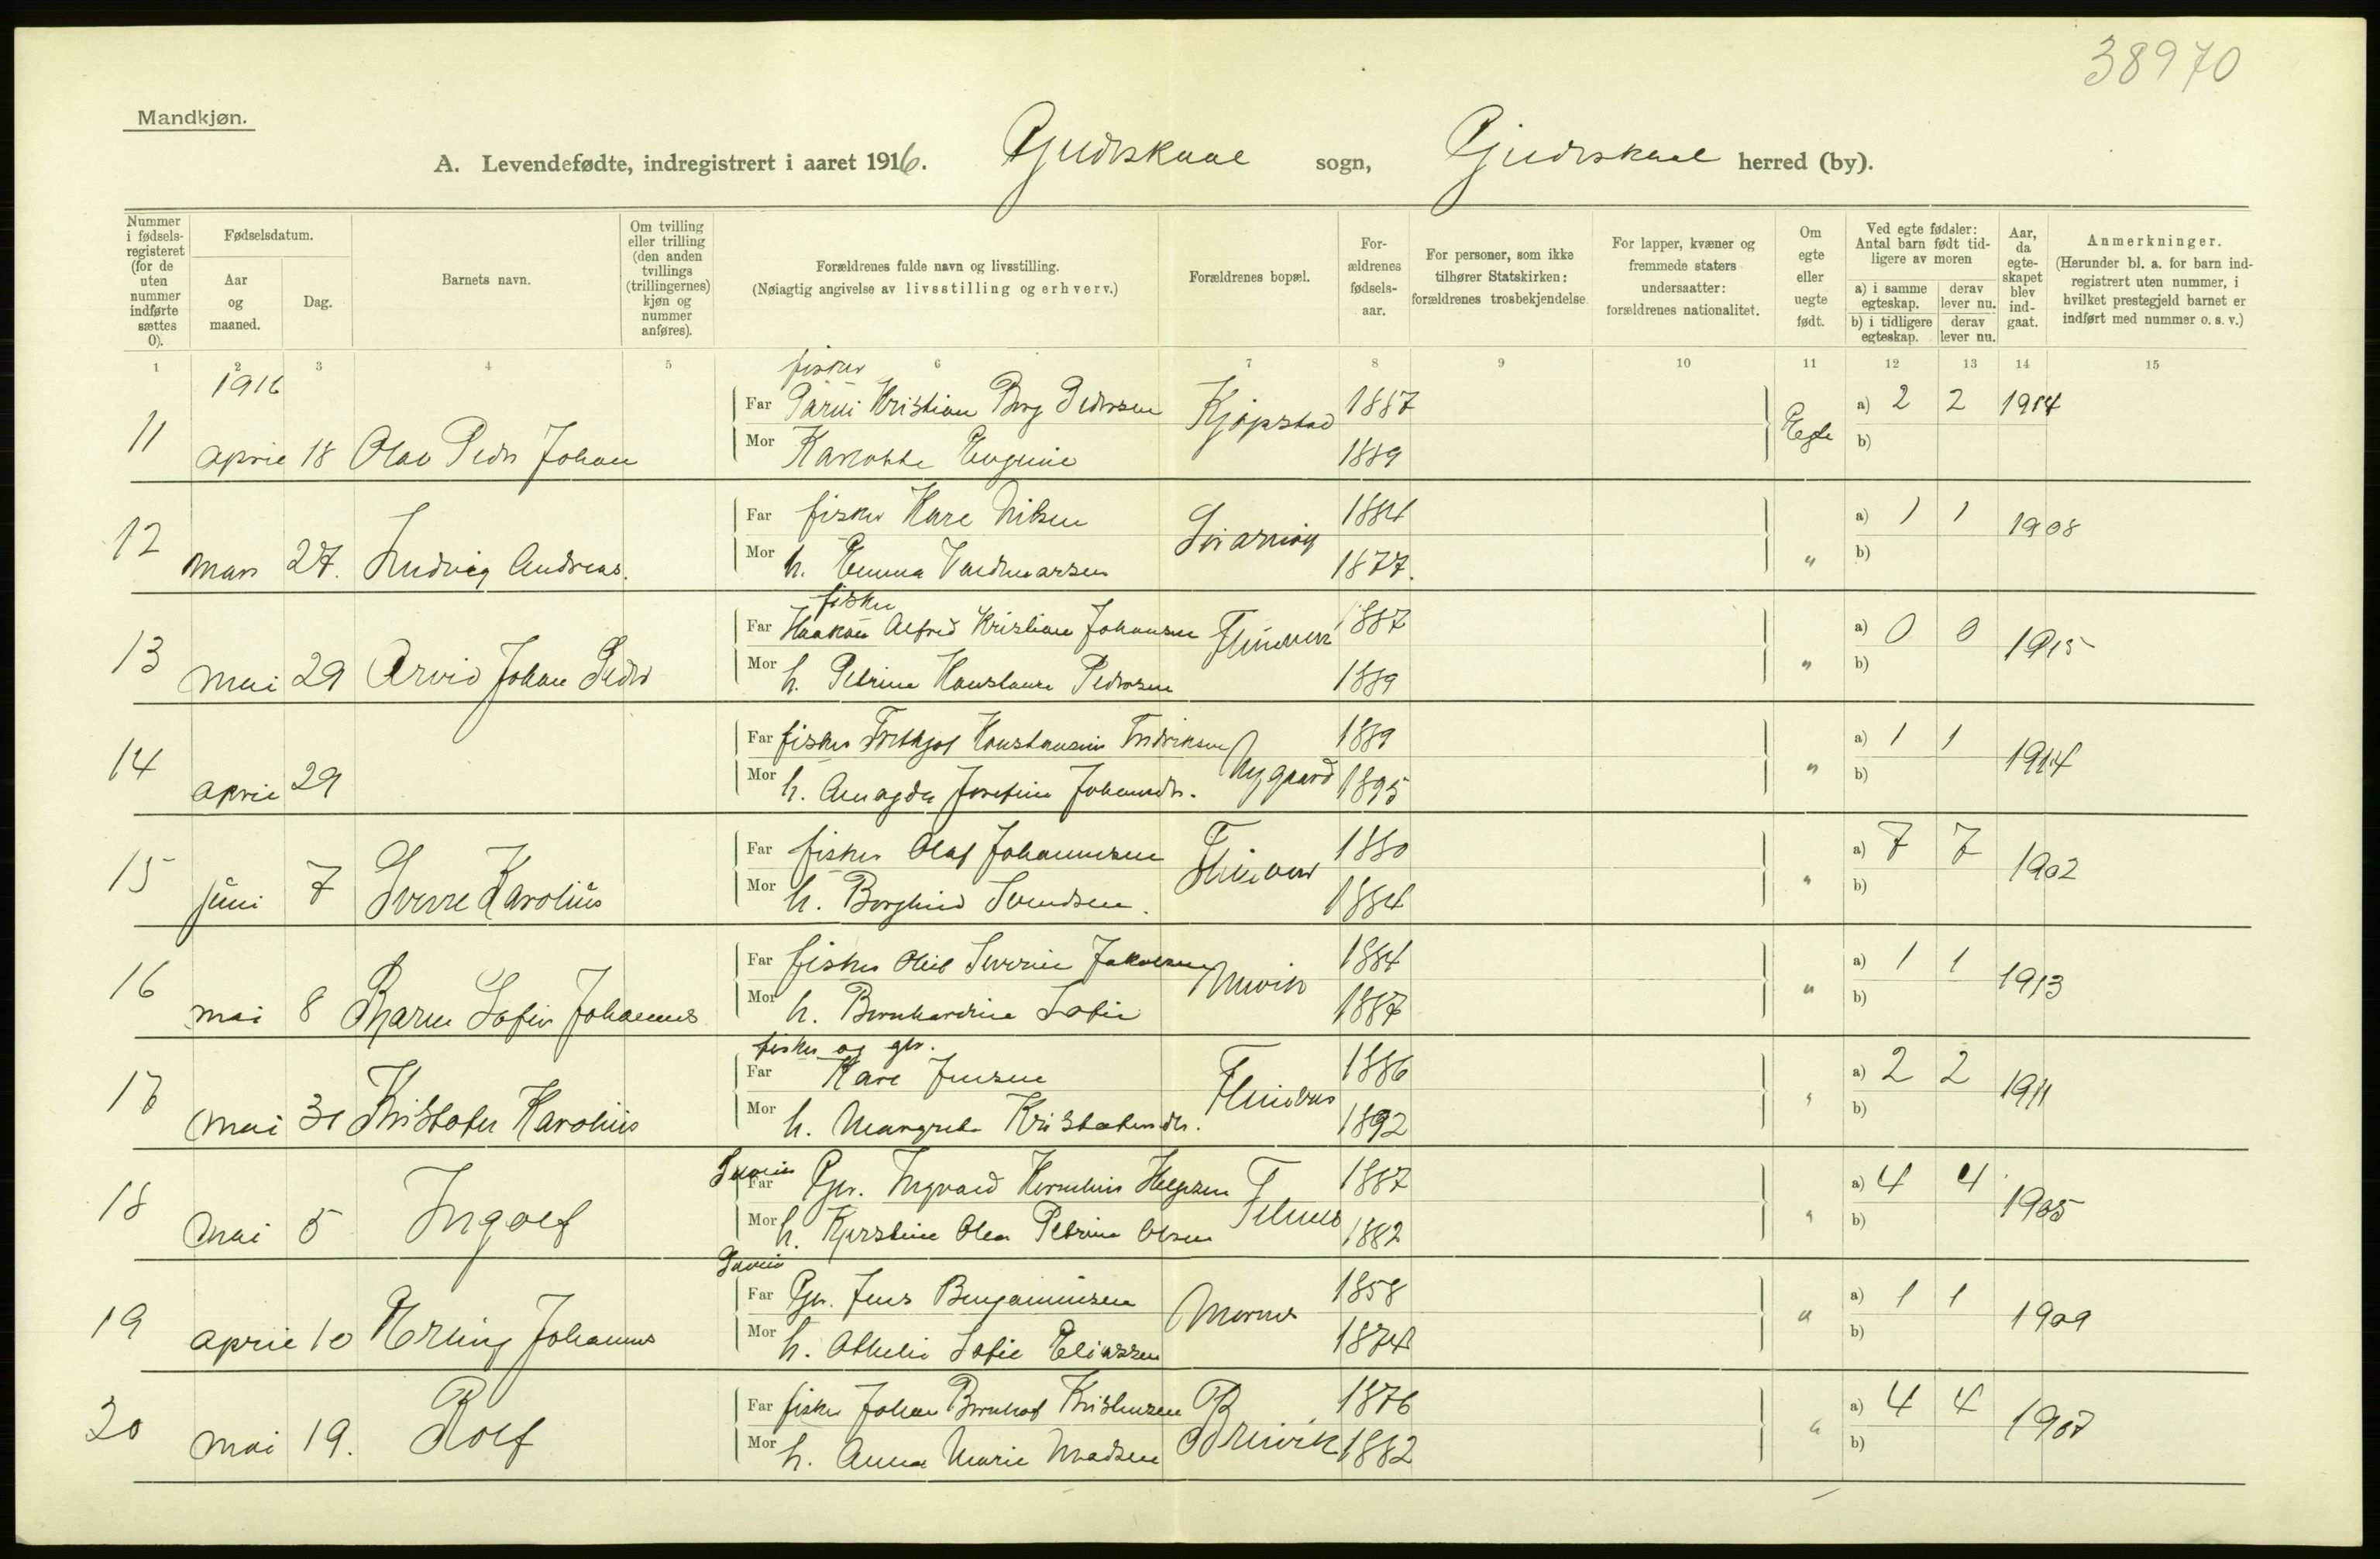 38970
Mandkjøn.
A. Levendefødte, indregistrert i aaret 1916. Gjidskaal sogn, Gjidskaal herred (by).
Nummer i fødselsregisteret (for de uten nummer indførte sættes 0).
Fødselsdatum.
Aar og maaned.
Dag.
Barnets navn.
Om tvilling eller trilling (den anden tvillings (trillingernes) kjøn og nummer anføres).
Forældrenes fulde navn og livsstilling.
(Nøiagtig angivelse av livsstilling og erhverv.)
Forældrenes bopæl.
Forældrenes fødselsaar.
For personer, som ikke tilhører Statskirken: forældrenes trosbekjendelse.
For lapper, kvæner og fremmede staters undersaatter: forældrenes nationalitet.
Om egte eller uegte født.
Ved egte fødsler: Antal barn født tidligere av moren
a) i samme egteskap.
derav lever nu.
b) i tidligere egteskap.
derav lever nu.
Aar, da egteskapet blev indgaat.
Anmerkninger.
(Herunder bl. a. for barn indregistrert uten nummer, i hvilket prestegjeld barnet er indført med nummer o. s. v.)
1 2 3 4 5 6 7 8 9 10 11 12 13 14 15
1916
fisker
Far Kristian Berg Pedersen Kjøpstad 1887 a) 2 2 1914
11 april 18 Olav Peder Johan Mor Eugenie 1889 Egte b)
Far fisker Karl Nilsen 1884 a) 1 1 1908
12 mars 27. Ludvig Andreas. Mor h. Emma Valdmarsen 1877. " b)
fisker
Far Haakon Alfred Kristian Johansen 1887 a) 0 0 1915
13 mai 29 Arvid Johan Peder Mor h. Petrine Konstance Pedersen 1889 " b)
Far fisker Frithjof Konstansius Fredriksen Nygaard 1889 a) 1 1 1914
14 april 29 Mor h. Amagda Josefine Johansdr. 1895 " b)
Far fisker Olaf Johannesen 1880 a) 7 7 1902
15 juni 7 Sverre Karolius Mor h. Borghild Svendsen. 1884 " b)
Far fisker Severin Jakobsen 1884 a) 1 1 1913
16 mai 8 Sofus Johannes Mor h. Bernhardine Sofie 1887 " b)
fisker og gbr.
Far Karl Jensen 1886 a) 2 2 1911
17 mai 31 Kristofer Karolius Mor h. Margrete Kristofersdr. 1892 " b)
Far Gbr. Ingvald Kornelius Helgesen 1887 a) 4 4 1905
18 mai 5 Ingolf Mor h. Kjerstine Olea Petrine Olsen 1882 " b)
Far Gbr. Jens Benjaminsen 1858 a) 1 1 1909
19 april 10 Erling Johannes Mor h. Sofie Eliassen 1874 " b)
Far fisker Johan Bernhof Kristensen Breivik 1876 a) 4 4 1907
20 mai 19. Rolf Mor h. Anna Marie Madsen 1882 " b)